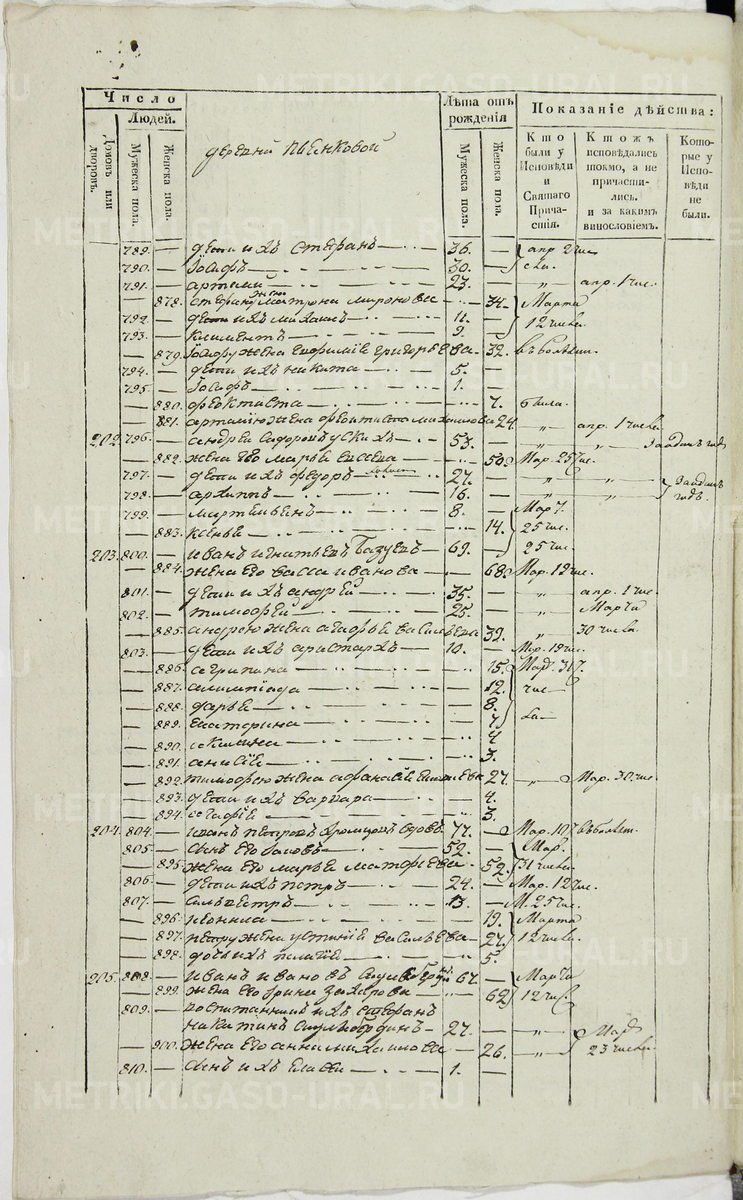 Число
Людей.
Домовъ или дворовъ.
Мужеска пола.
Женска пола.
деревни Пьенковой
Лѣта отъ рожденія
Мужеска пола.
Женска пола.
Показаніе дѣйства:
Кто были у Исповѣди и Святаго Причастія.
Ктожъ исповѣдались токмо, а не причастились. и за какимъ винословіемъ.
Которые у Исповѣди не были.
789. — дети ихъ Стефанъ — 36. — апр. 2 чис
790. — Іоасафъ — 30. — сла.
791. — Артамий — 23. — „ апр. 1 чис.
— 878. Стефану жена Матрона Миронова — 34. Марта
792. — дети ихъ Михаилъ — 11. — 12 числа
793. — Климентъ — 9. —
— 879. жена Евфимія Григорьева — 32. въ болѣзни.
794. — дети ихъ Никита — 5. —
795. — Іоасафъ — 1. —
— 880. Феоктиста — 7. была.
— 881. Артамію жена Феоктиста Михаилова 24. — „ апр. 1 числа
202. 796. — Андрей Сидоровъ — 53. — „ „
— 882. жена его Марья — 50. Мар. 25 чис.
797. — дети ихъ Федоръ — 27. — „ „
798. — Архипъ — 16. — „ „
799. — — 8. — Мар.
— 883. Ксенья — 14. 25 чис.
203. 800. — Иванъ Игнатьевъ — 69. — 25 чис.
— 884. жена его Васса Иванова — 68. Мар. 19 чис.
801. — дети ихъ Андрей — 35. — „ апр. 1 чис
802. — Тимофей — 25. — „ Марта
— 885. Андрею жена Агафья Васильева 39. „ 30 числа.
803. — дети ихъ Аристархъ — 10. — Мар. 19 чис.
— 886. Агрипина — 15. Мар. 31
— 887. Алимпіада — 12. чис
— 888. Дарья — 8.
— 889. Екатерина — 7 ла
— 890. Акилина — 4
— 891. Анисія — 3.
— 892. Тимофею жена Афанасія 27. — „ Мар. 30 чис.
— 893. дети ихъ Варвара — 4.
— 894. Агафія — 3.
204. 804. — Иванъ Петровъ вдовъ 77. — Мар. 10 въ болѣзн.
805. — сынъ его — 52. — Мар.
— 895. жена его Марья Матфеева — 52. 31 числа
806. — дети ихъ Петръ — 24. — Мар. 12 чис.
807. — Сильвестръ — 13. — М. 25 чис.
— 896. Неонила — 19. Марта
— 897. Петру жена Устинія Васильева — 27. 12 числа
— 898. дочь ихъ Пелагія — 5.
205. 808. — Иванъ Ивановъ 67. — Марта
— 899. жена его Ирина Захарова — 62. 12 чис.
809. — воспитанникъ ихъ Стефанъ
Никитинъ — 27. — „ Мар
— 900. жена его Анна Михаилова — 26. — „ 23 числа
810. — сынъ ихъ Власій — 1. —
METRIKI.GASO-URAL.RU